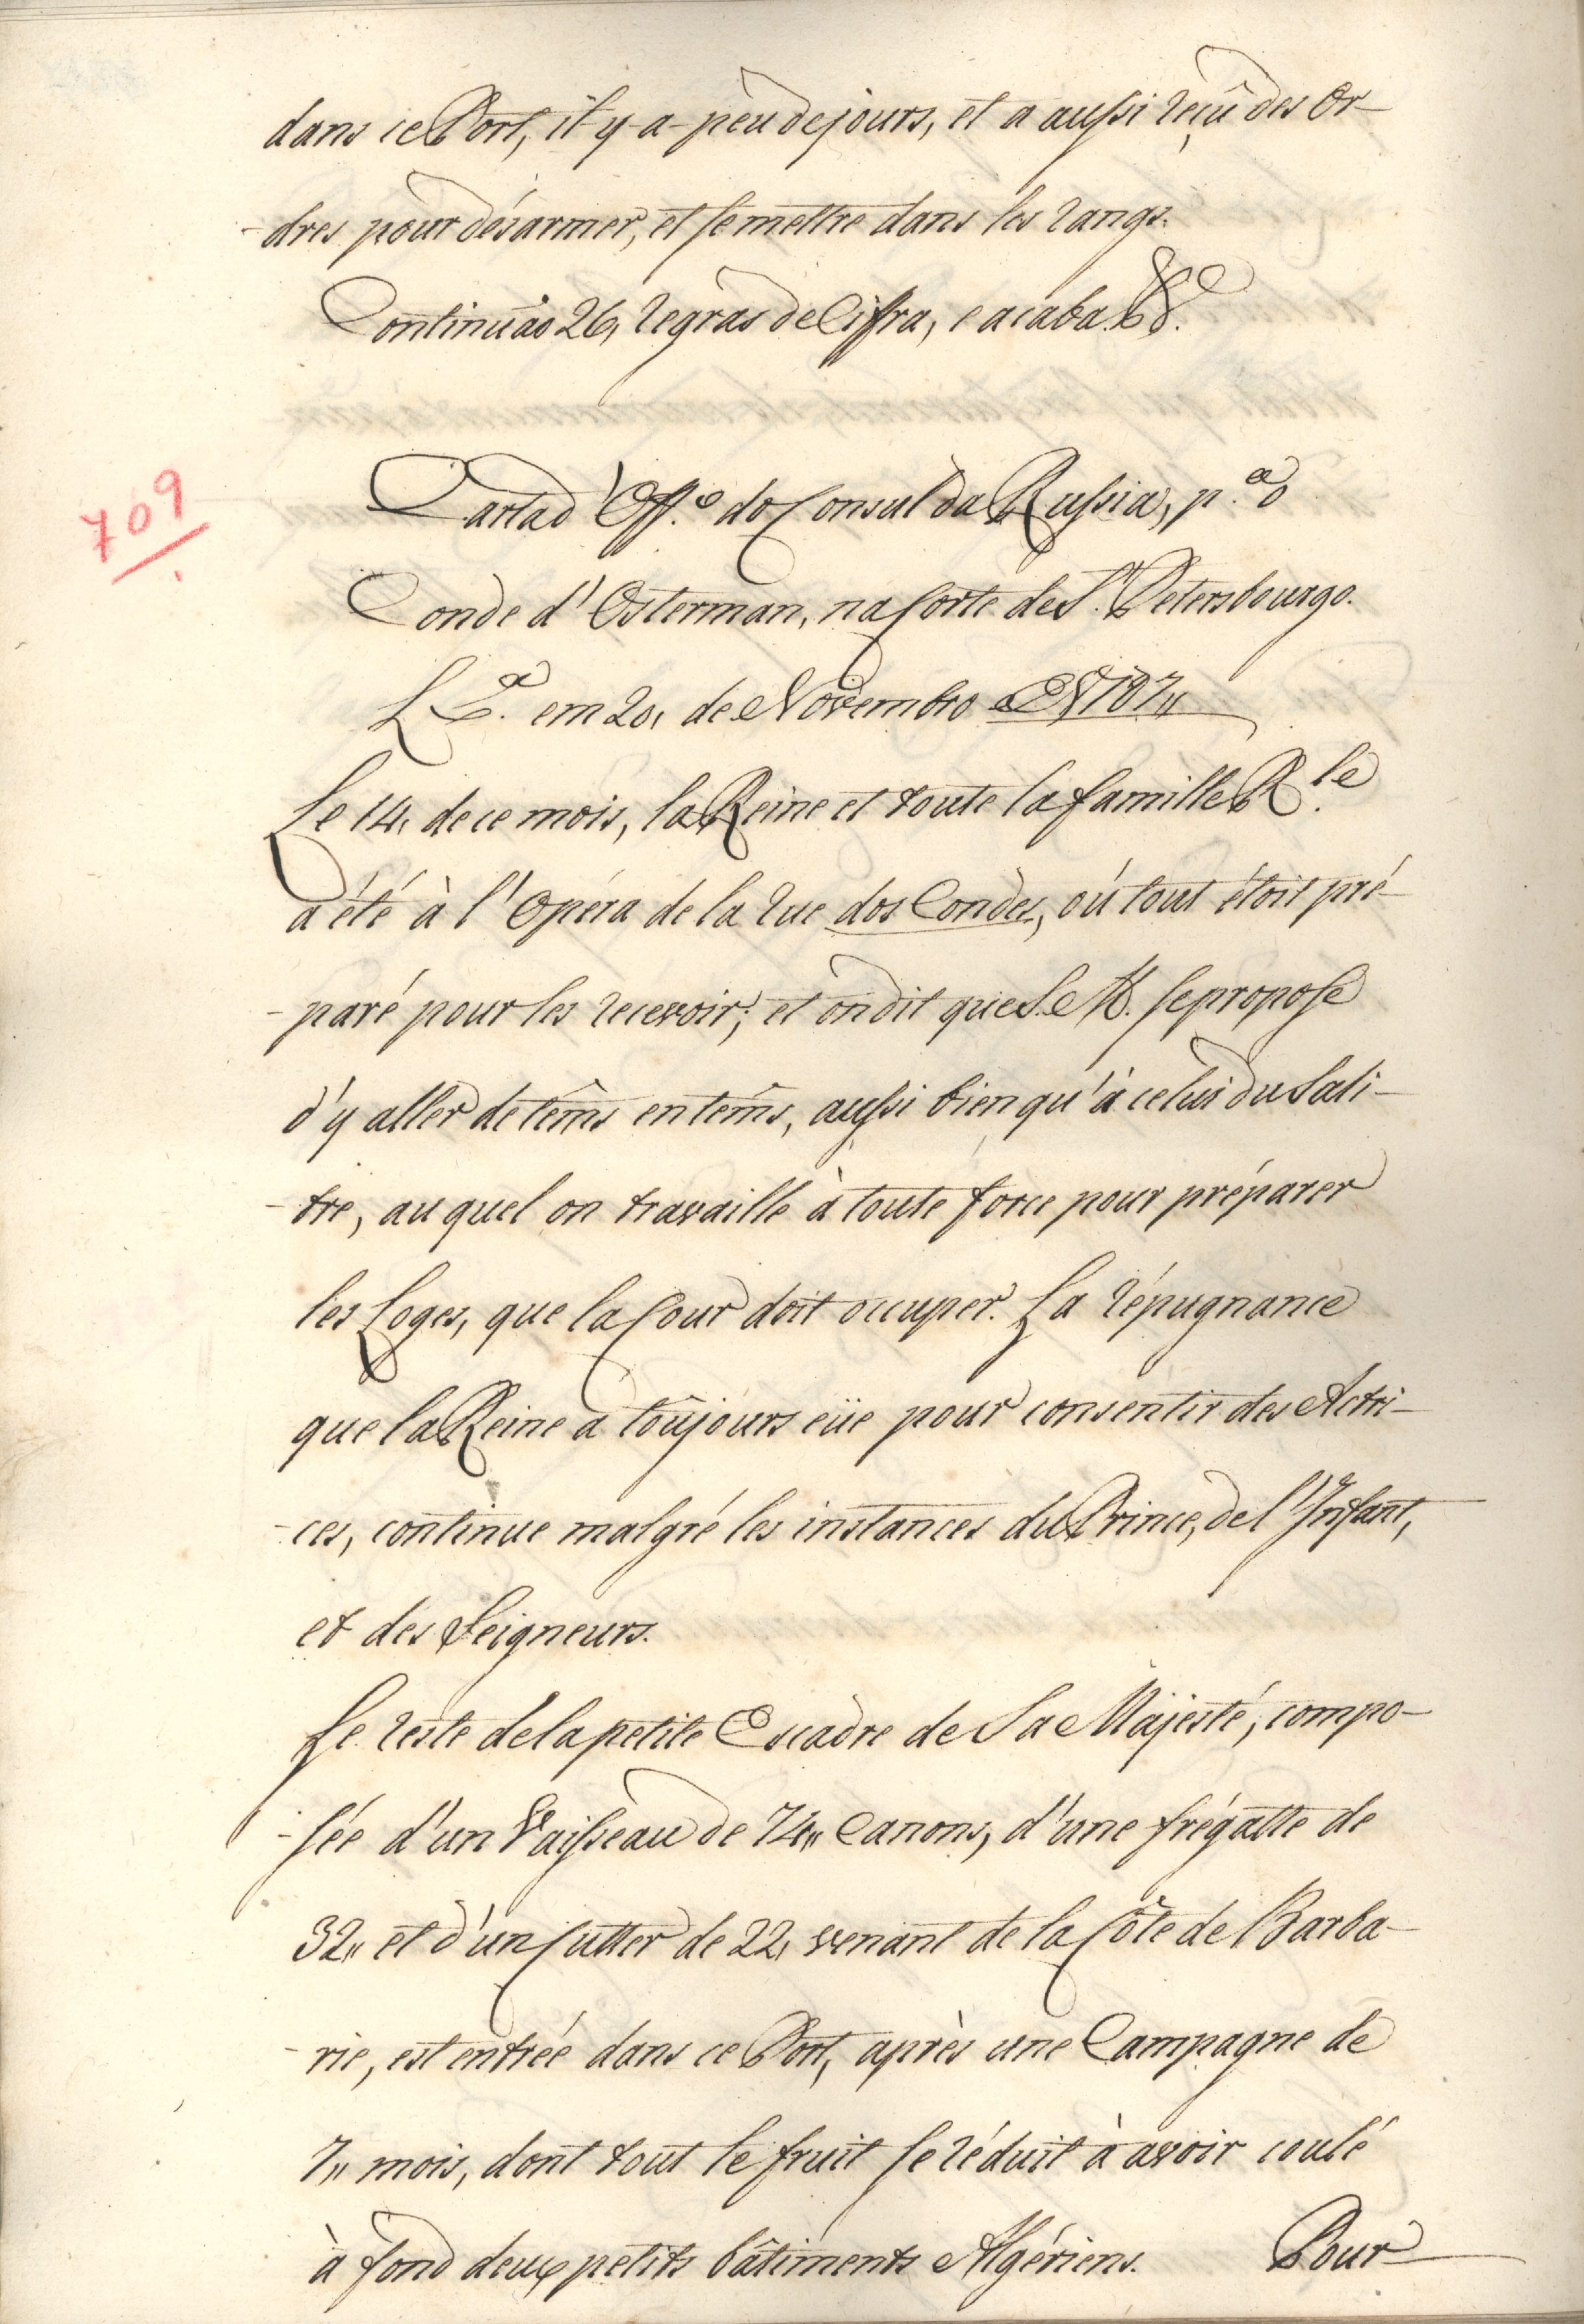 dans ce Port, il y-a-peu de jours, et a aussi reçû des Or-
-dres pour désarmer, et se mettre dans les rangs.
Continuão 26, regras de Cifra, e acaba &.ª
709
Carta d'Off.º do Consul da Russia, p.ª o
Conde d'Osterman, na Corte de S. Petersbourgo.
L.xª em 20, de Novembro
Le 14, de ce mois, la Reine et toute la famille R.le
a été à l'Opéra de la rue dos Condes, où tout étoit pré-
-paré pour les recevoir; et on dit que S. M. se propose
d'y aller de têms en têms, aussi bien qu'à celui du Sali-
-tre, au quel on travaille à toute force pour préparer
les Loges, que la Cour doit occuper. La répugnance
que la Reine a toûjours eüe pour consentir des Actri-
-ces, continue malgré les instances du Prince, de l'Infant,
et des Seigneurs.
Le reste de la petite Escadre de Sa Majesté, compo-
-sée d'un Vaisseau de 74,, Canons, d'une frégatte de
32,, et d'un Cutter de 22, venant de la Côte de Barba-
-rie, est entrée dans ce Port, après une Campagne de
7,, mois, dont tout le fruit se réduit à avoir coulé
à fond deux petits bâtiments Algériens. Pour